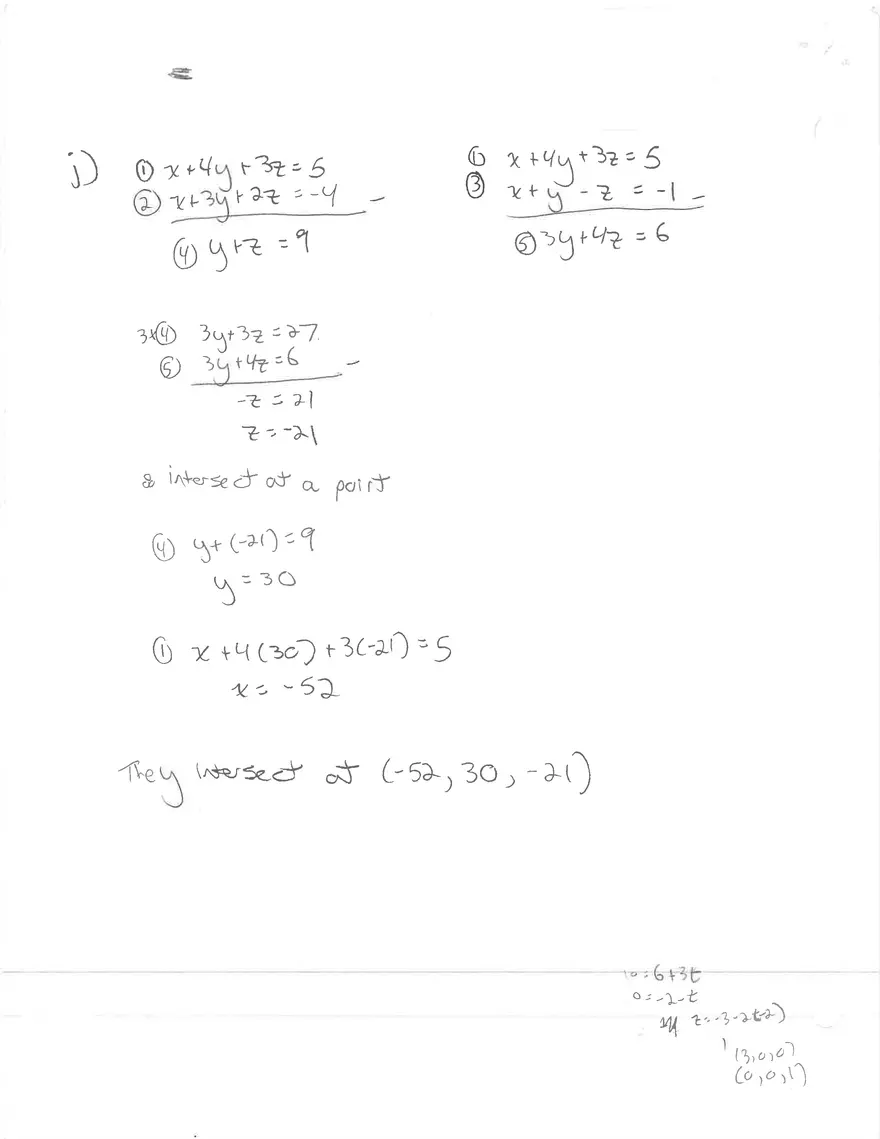 j) ① x+4y+3z=5
② x+3y+2z=-4 -
④ y+z=9
① x+4y+3z=5
③ x+y-z=-1 -
⑤ 3y+4z=6
3x④ 3y+3z=27
⑤ 3y+4z=6 -
-z=21
z=-21
intersect at a point
④ y+(-21)=9
y=30
① x+4(30)+3(-21)=5
x=-52
They intersect at (-52, 30, -21)
0=6+3t
0=-2-t
(3,0,0)
(0,0,1)